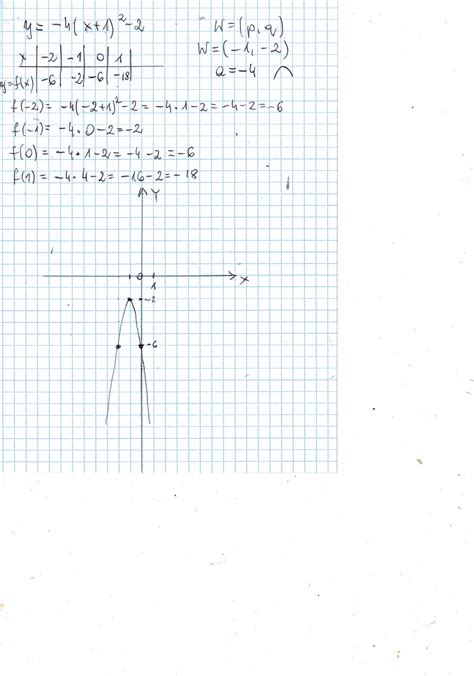 y = -4(x+1)² - 2
W = (p, q)
W = (-1, -2)
a = -4
x | -2 | -1 | 0 | 1 |
y=f(x) | -6 | -2 | -6 | -18 |
f(-2) = -4(-2+1)² - 2 = -4·1 - 2 = -4 - 2 = -6
f(-1) = -4·0 - 2 = -2
f(0) = -4·1 - 2 = -4 - 2 = -6
f(1) = -4·4 - 2 = -16 - 2 = -18
Y
0
1
x
-2
-6